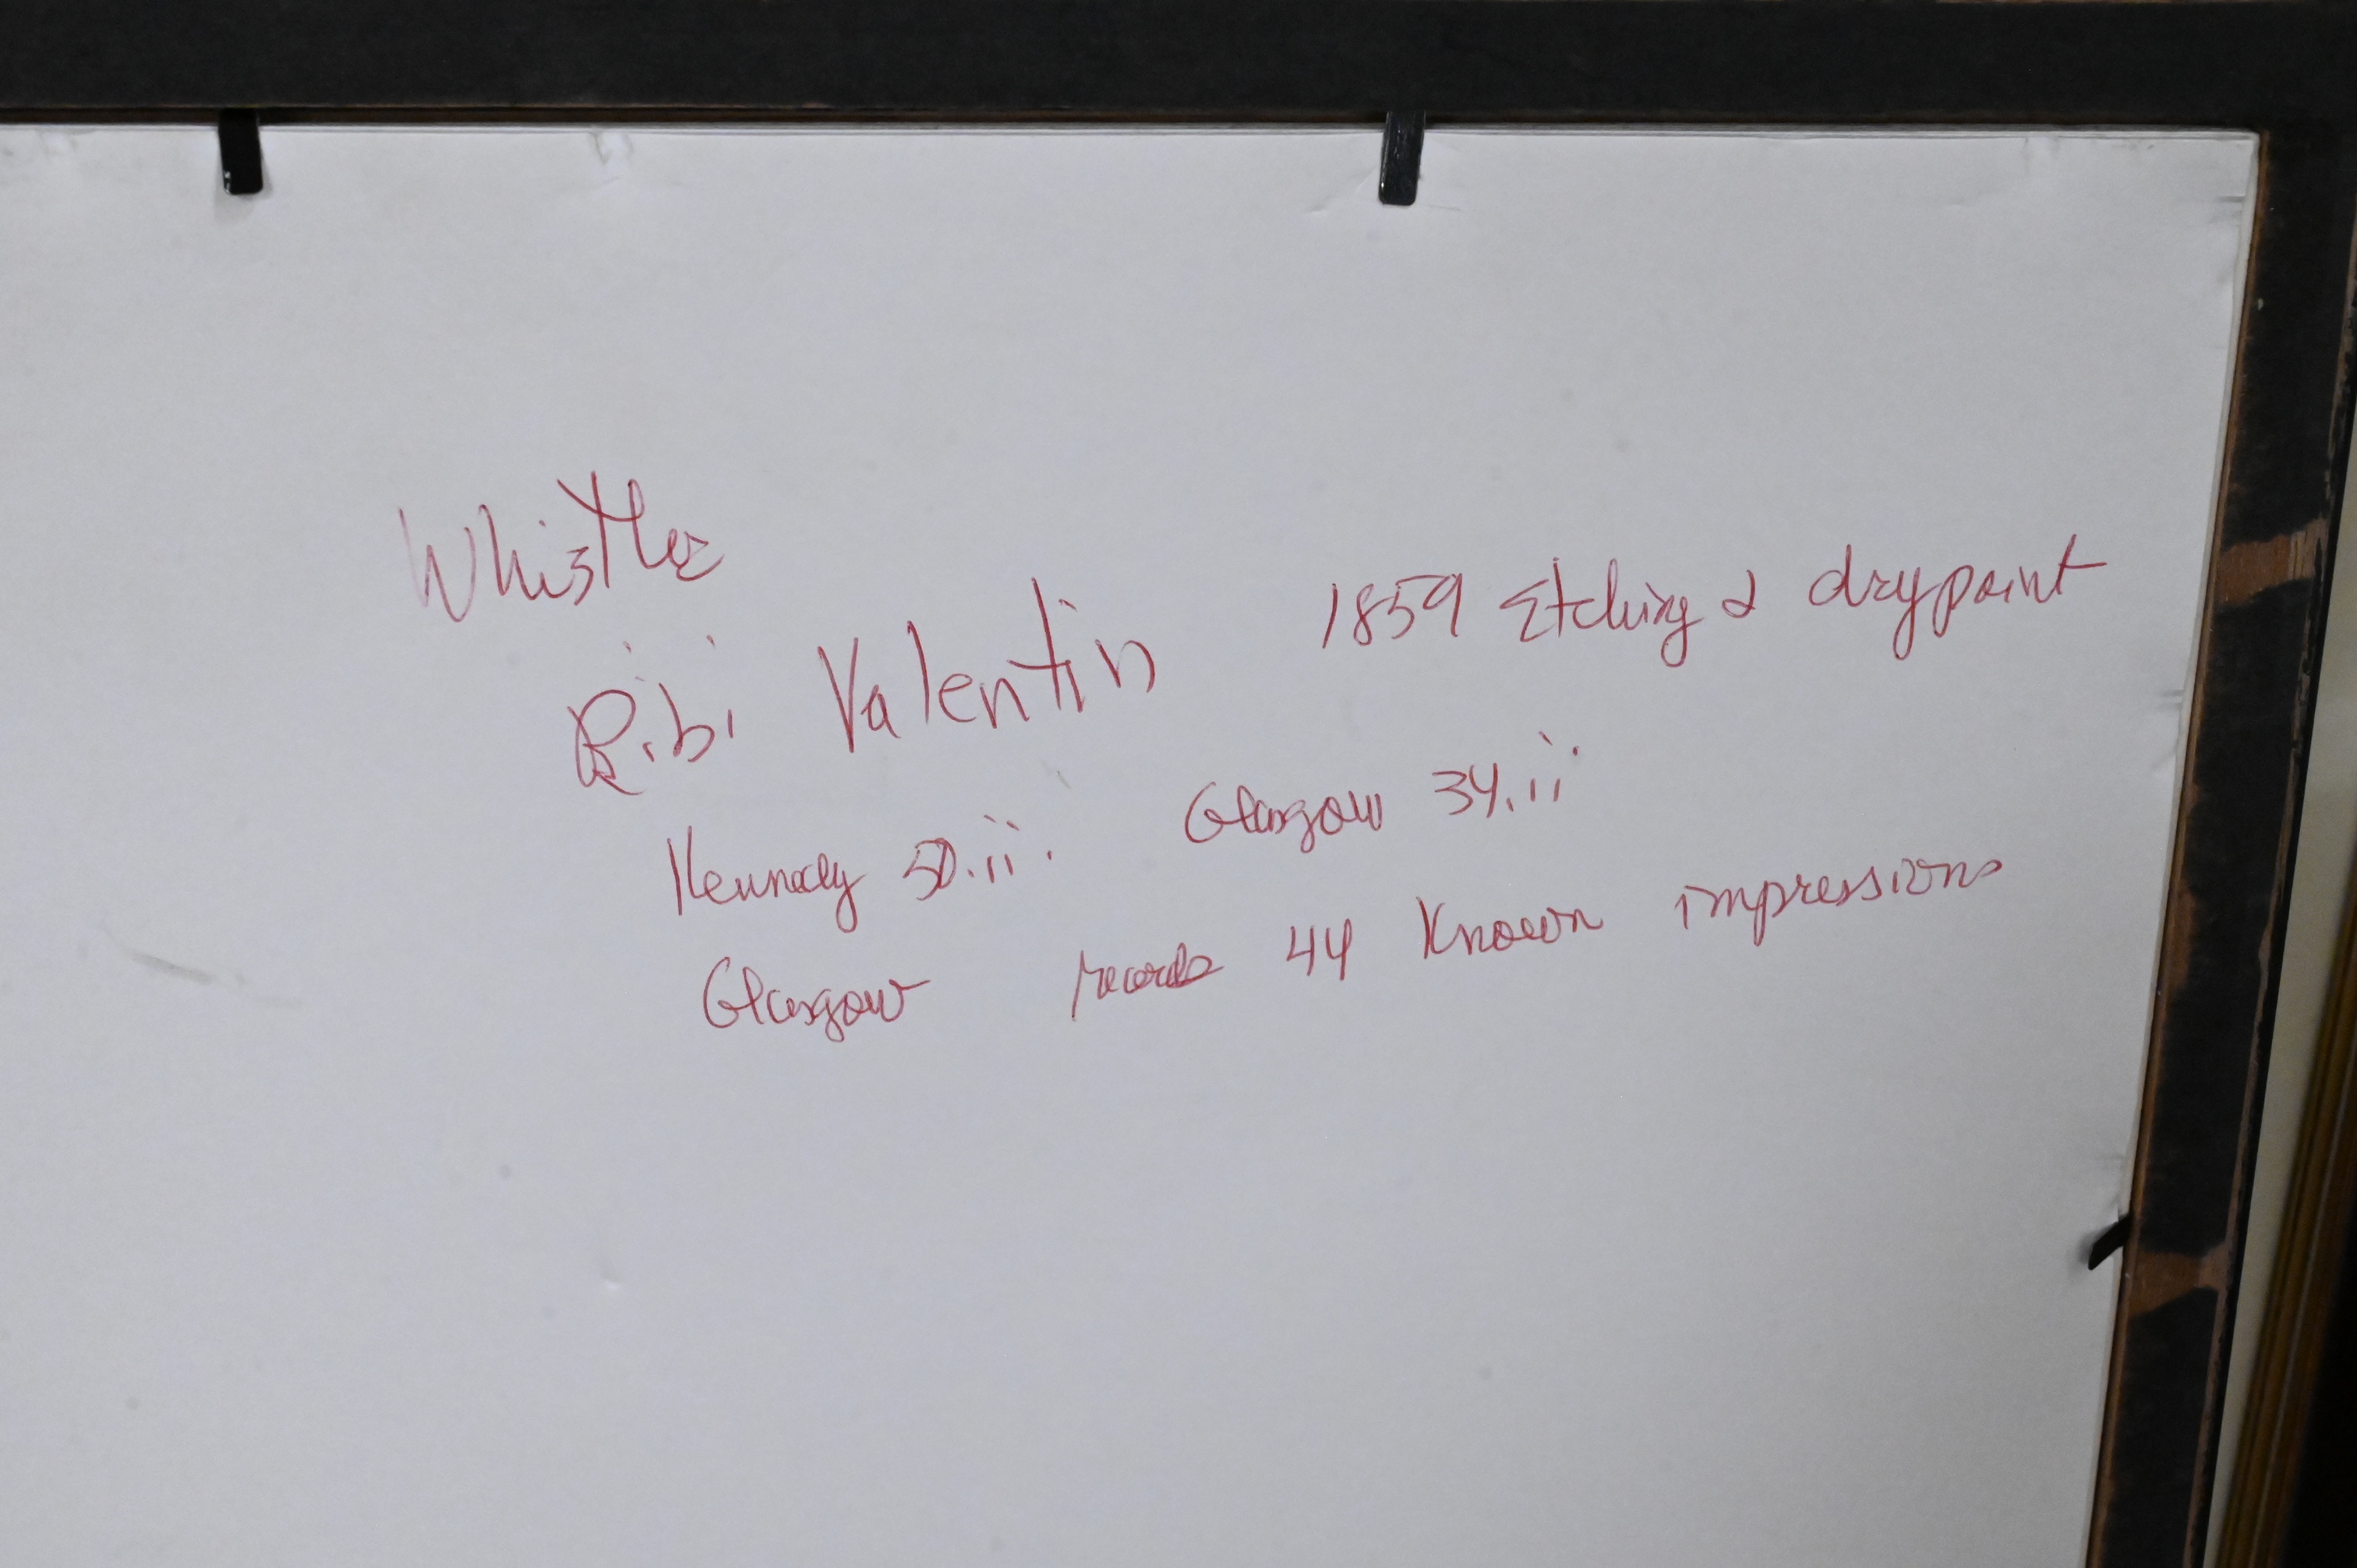 Whistler
Bibi Valentin 1859 Etching & drypoint
Kennedy 50.ii. Glasgow 34.ii
Glasgow records 44 Known impressions